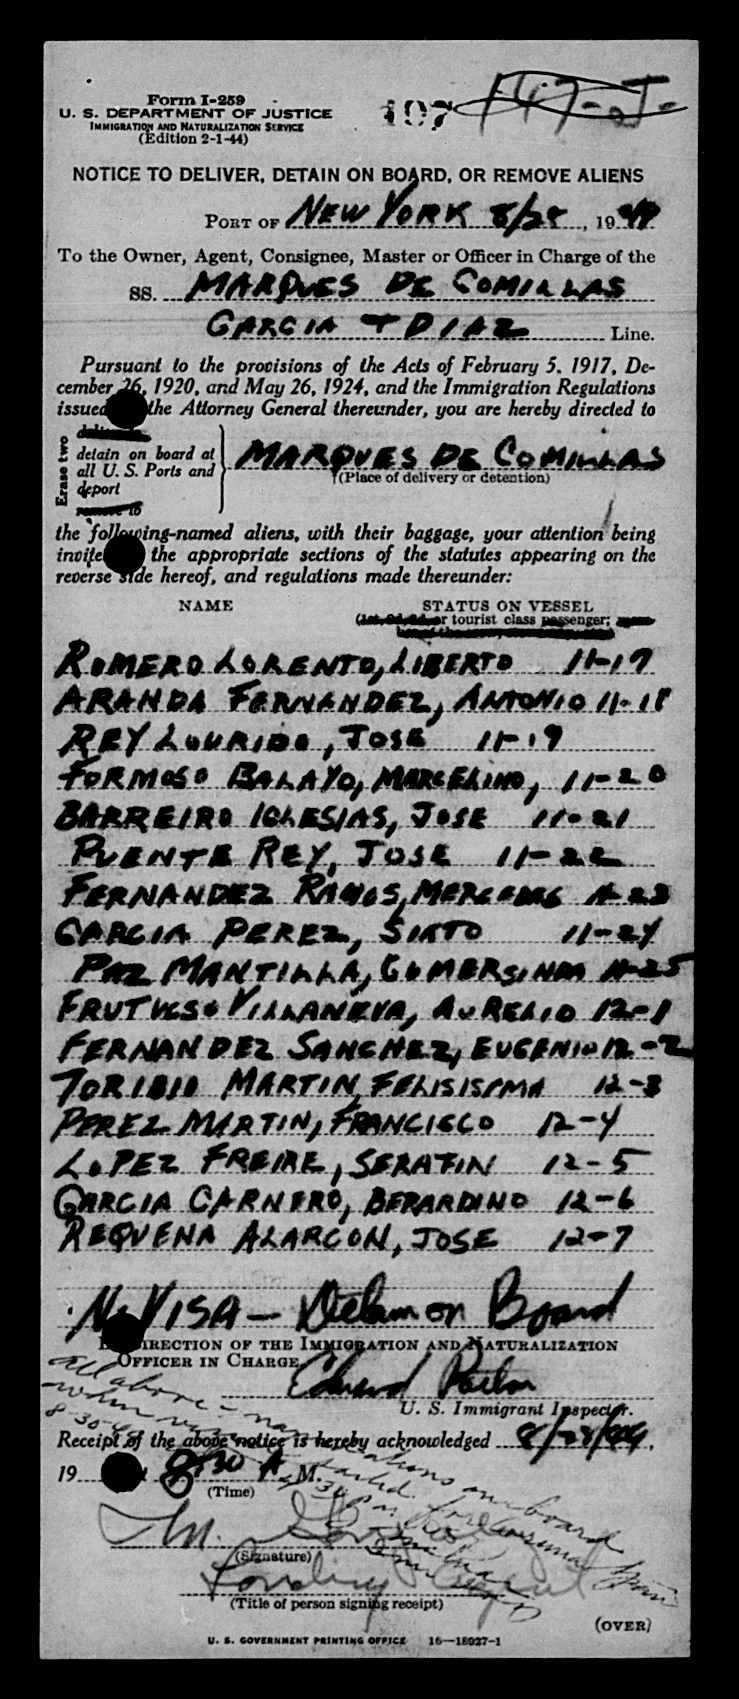 Form I-259
U. S. DEPARTMENT OF JUSTICE
IMMIGRATION AND NATURALIZATION SERVICE
(Edition 2-1-44)
107
NOTICE TO DELIVER, DETAIN ON BOARD, OR REMOVE ALIENS
PORT OF NEW YORK 8/28, 1949
To the Owner, Agent, Consignee, Master or Officer in Charge of the
SS. MARQUES DE COMILLAS
GARCIA + DIAZ Line.
Pursuant to the provisions of the Acts of February 5, 1917, De-
cember 26, 1920, and May 26, 1924, and the Immigration Regulations
issued the Attorney General thereunder, you are hereby directed to
Erase two
detain on board at
all U. S. Ports and
deport
remove to
MARQUES DE COMILLAS
(Place of delivery or detention)
the following-named aliens, with their baggage, your attention being
invite the appropriate sections of the statutes appearing on the
reverse side hereof, and regulations made thereunder:
NAME STATUS ON VESSEL
or tourist class passenger;
ROMERO LORENTO, LIBERTO 11-17
ARANDA FERNANDEZ, ANTONIO 11-18
REY LOURIDO, JOSE 11-19
FORMOSO BALAYO, MARCELINO, 11-20
BARREIRO IGLESIAS, JOSE 11-21
PUENTE REY, JOSE 11-22
FERNANDEZ RAMOS, MERCEDES 11-23
GARCIA PEREZ, SIXTO 11-24
PAZ MANTILLA, GUMERSINDA 11-25
FRUTUOSO VILLANEVA, AURELIO 12-1
FERNANDEZ SANCHEZ, EUGENIO 12-2
TORIBIO MARTIN, FELISISIMA 12-3
PEREZ MARTIN, FRANCISCO 12-4
LOPEZ FREIRE, SERAFIN 12-5
GARCIA CARNERO, BERARDINO 12-6
REQUENA ALARCON, JOSE 12-7
No VISA - Detain on Board
DIRECTION OF THE IMMIGRATION AND NATURALIZATION
OFFICER IN CHARGE.
Edward
U. S. Immigrant Inspector.
all above-named
on board
when
sailed for Coruna Spain
Receipt of the above notice is hereby acknowledged 8/28/49,
19 830 A. M.
(Time)
(Signature)
Agent
(Title of person signing receipt)
(OVER)
U. S. GOVERNMENT PRINTING OFFICE 16—18027-1